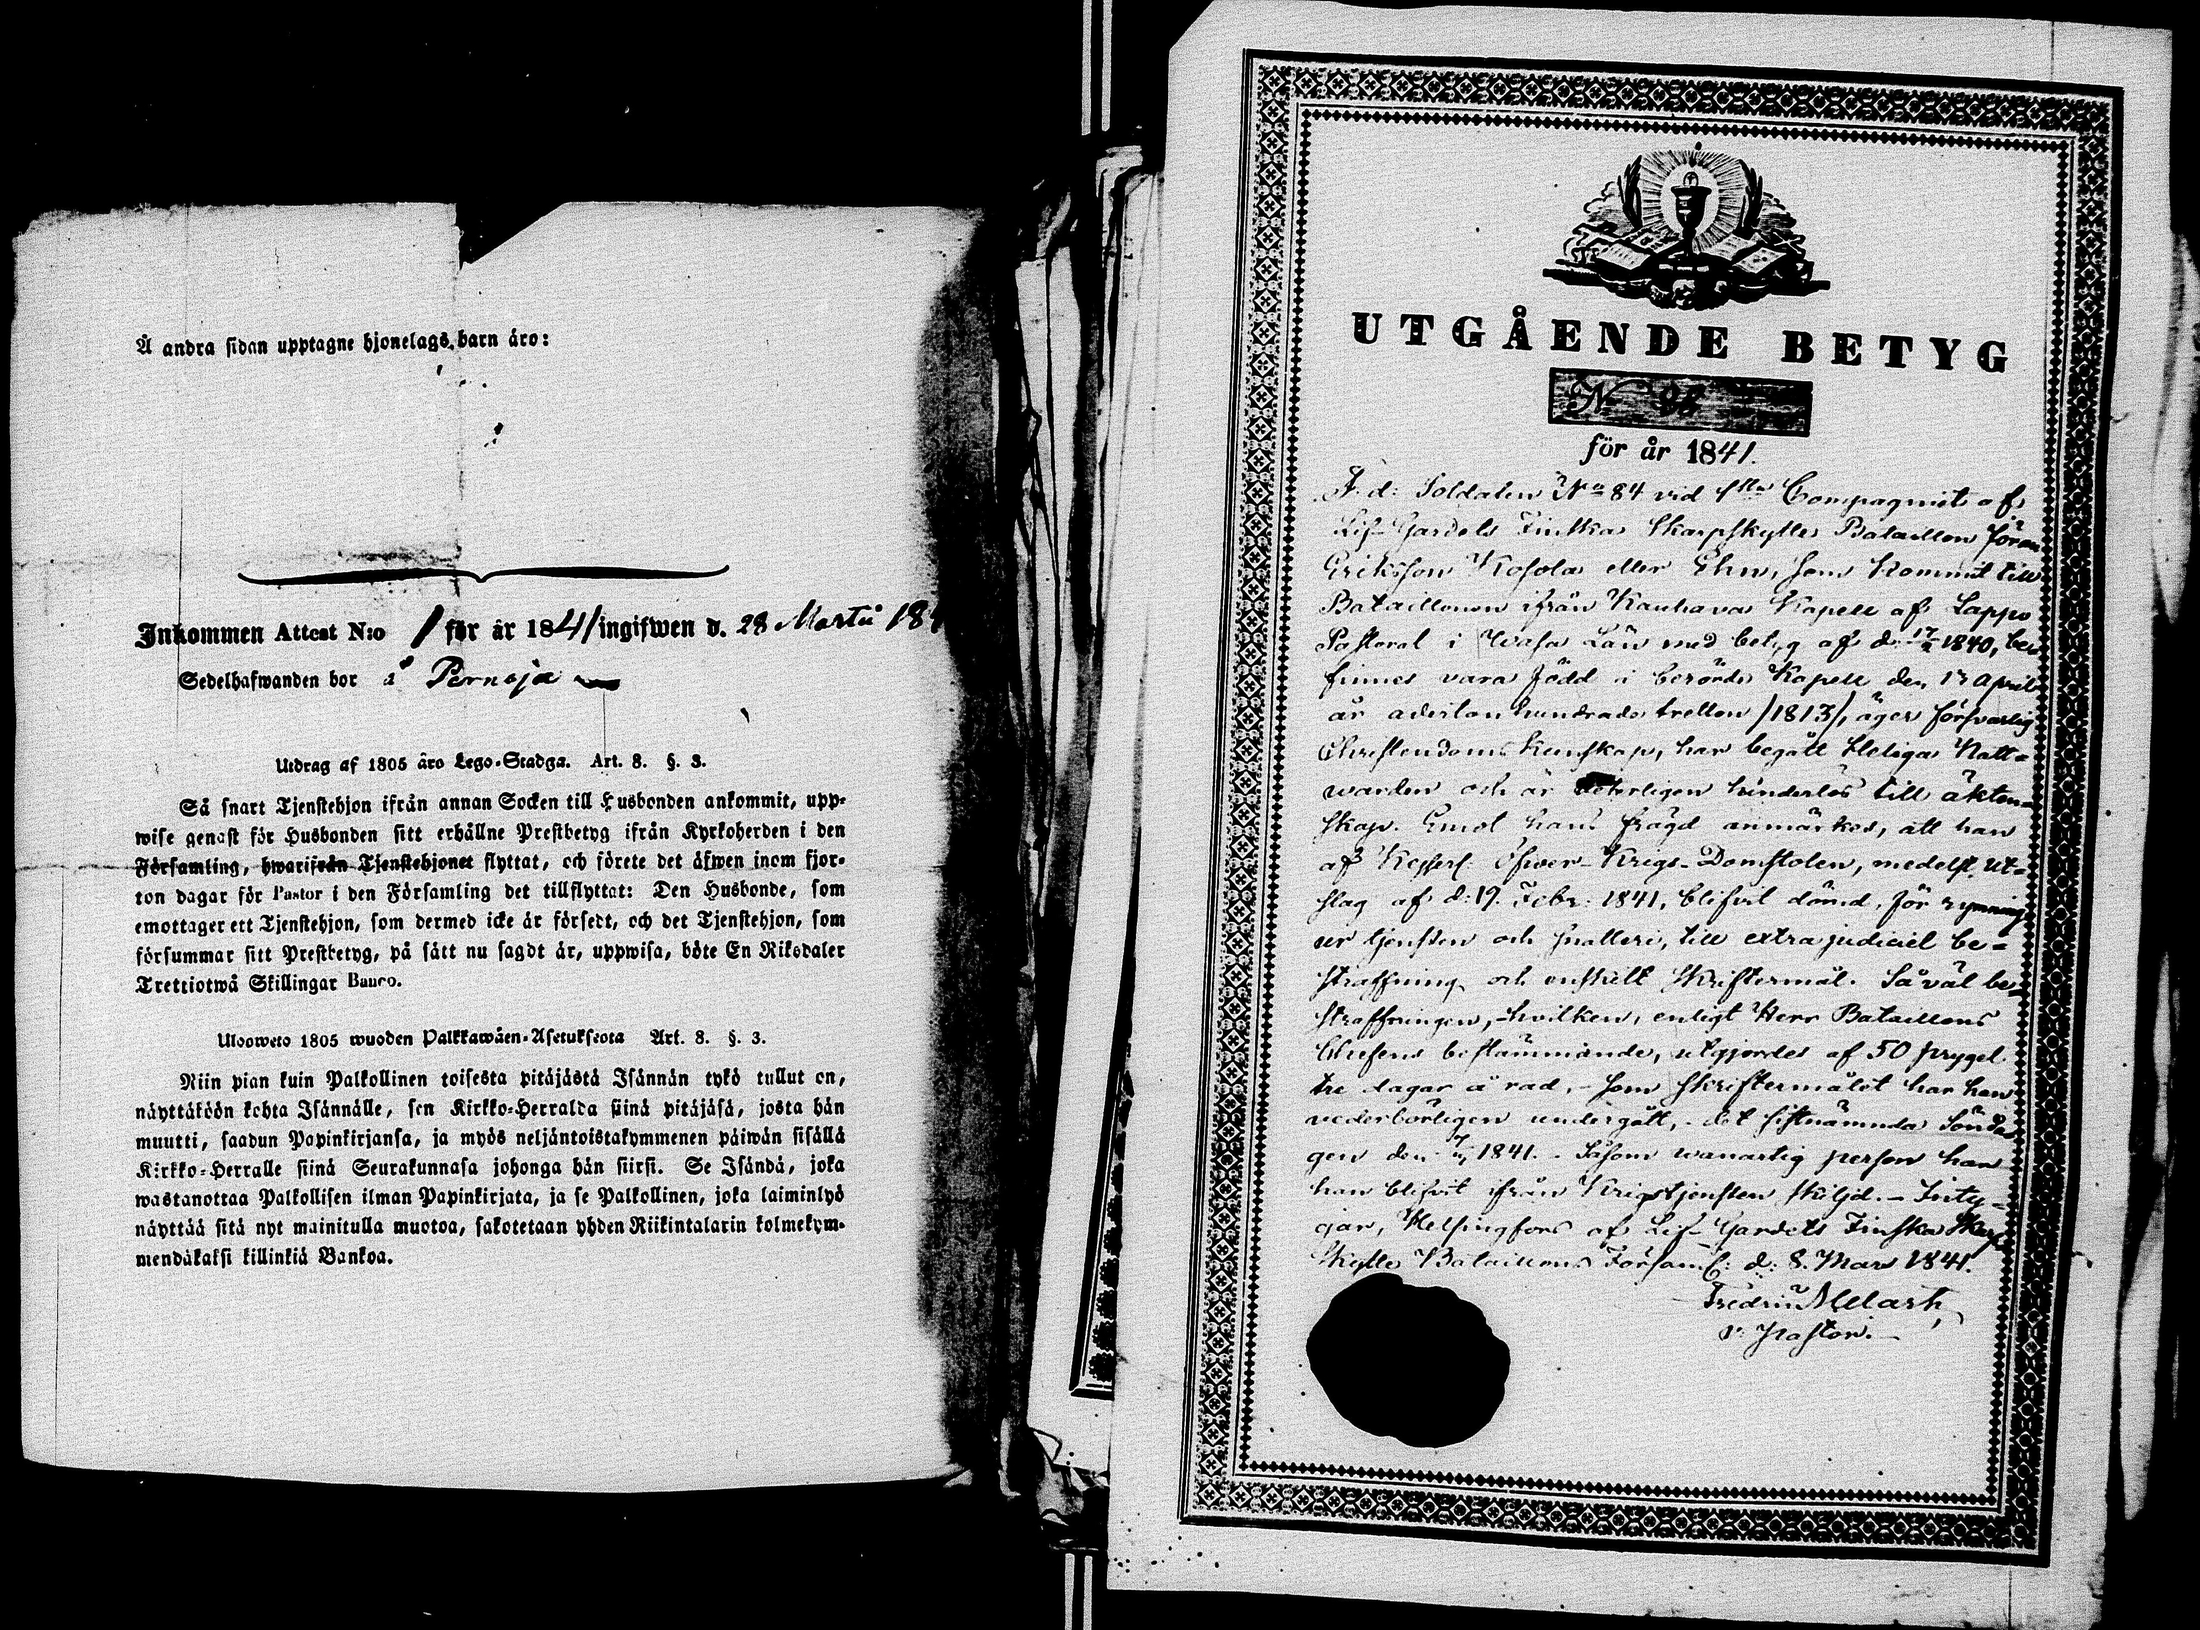 Å andra sidan upptagne hjonelags barn äro:
Inkommen Attest N:o 1 för år 1841 ingifwen d. 28 Martii 184
Sedelhafwanden bor å Pernaja
Utdrag af 1805 års Lego-Stadga. Art. 8. §. 3.
Så snart Tjenstehjon ifrån annan Socken till Husbonden ankommit, upp-
wise genast för Husbonden sitt erhållne Prestbetyg ifrån Kyrkoherden i den
Församling, hwarifrån Tjenstehjonet flyttat, och förete det äfwen inom fjor-
ton dagar för Pastor i den Församling det tillflyttat: Den Husbonde, som
emottager ett Tjenstehjon, som dermed icke är försedt, och det Tjenstehjon, som
försummar sitt Prestbetyg, på sätt nu sagdt är, uppwisa, böte En Riksdaler
Trettiotwå Skillingar Banco.
Ulosweto 1805 wuoden Palkkawäen-Asetuksesta Art. 8. §. 3.
Niin pian kuin Palkollinen toisesta pitäjästä Isännän tykö tullut on,
näyttäköön kohta Isännälle, sen Kirkko-Herralda siinä pitäjäsä, josta hän
muutti, saadun Papinkirjansa, ja myös neljäntoistakymmenen päiwän sisällä
Kirkko-Herralle siinä Seurakunnasa johonga hän siirsi. Se Isändä, joka
wastanottaa Palkollisen ilman Papinkirjata, ja se Palkollinen, joka laiminlyö
näyttää sitä nyt mainitulla muotoa, sakotetaan yhden Riikintalarin kolmekym-
mendäkaksi killinkiä Bankoa.
UTGÅENDE BETYG
N
för år 1841.
F. d. Soldaten No 84 vid 4de Compagniet af
Lif-Gardets Finska Skarpskytte Bataillon Jöran
Eriksson Kosola eller Ehn, som kommit till
Bataillonen ifrån Kauhava Kapell af Lappo
Pastorat i Wasa Län med betyg af d. 1840, be-
finnes vara född i berörde Kapell den 13 April
år adertonhundrade tretton /1813/, äger försvarlig
Christendoms kunskap, har begått Heliga Natt-
warden och är hinderlös till äkten-
skap. Emot hans frägd anmärkes, att han
af Kejserl. Öfwer-Krigs-Domstolen, medelst ut-
slag af d: 19. Febr: 1841, blifvit dömd, för rymning
ur tjensten och snatteri, till extrajudiciel be-
straffning och enskilt skriftermål. Såväl be-
straffningen, -hvilken, enligt Herr Bataillons
Chefens bestämmande, utgjordes af 50 prygel
tre dagar å rad, - som skriftermålet har han
vederbörligen undergått, - det sistnämnda Sönda-
gen den 1841. - Såsom wanartig person har
han blifvit ifrån Krigstjensten skiljd. - Inty-
gar, Helsingfors af Lif-Gardets Finska Skarp-
skytte Bataillons Församl: d: 8. Mars 1841.
v: Pastor.